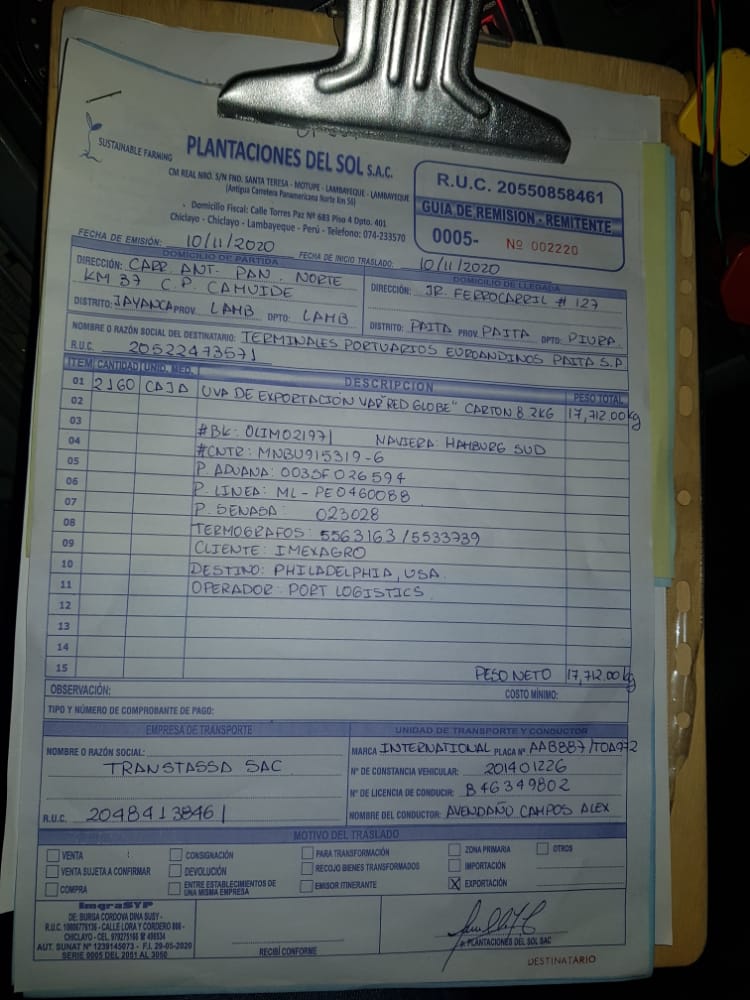 SUSTAINABLE FARMING
PLANTACIONES DEL SOL S.A.C.
CM REAL NRO. S/N FND. SANTA TERESA - MOTUPE - LAMBAYEQUE - LAMBAYEQUE
(Antigua Carretera Panamericana Norte Km 56)
Domicilio Fiscal: Calle Torres Paz Nº 683 Piso 4 Dpto. 401
Chiclayo - Chiclayo - Lambayeque - Perú - Telefono: 074-233570
R.U.C. 20550858461
GUIA DE REMISION - REMITENTE
0005- Nº 002220
FECHA DE EMISIÓN: 10/11/2020 FECHA DE INICIO TRASLADO: 10/11/2020
DOMICILIO DE PARTIDA
DIRECCIÓN: CARR. ANT. PAN. NORTE
KM 37 C.P. CAHUIDE
DISTRITO: JAYANCA PROV. LAMB DPTO: LAMB
DOMICILIO DE LLEGADA
DIRECCIÓN: JR. FERROCARRIL # 127
DISTRITO: PAITA PROV. PAITA DPTO: PIURA
NOMBRE O RAZÓN SOCIAL DEL DESTINATARIO: TERMINALES PORTUARIOS EUROANDINOS PAITA S.A
R.U.C. 20522473571
ITEM CANTIDAD UNID. MED. DESCRIPCION PESO TOTAL
01 2160 CAJA UVA DE EXPORTACIÓN VAR "RED GLOBE" CARTON 8.2KG 17,712.00 kg
02
03 #BK: OLIM02197 NAVIERA: HAMBURG SUD
04 #CNTR: MNBU915319-6
05 P. ADUANA: 0035F026594
06 P. LINEA: ML-PE0460088
07 P. SENASA: 023028
08 TERMOGRAFOS: 5563163 / 5533739
09 CLIENTE: IMEXAGRO
10 DESTINO: PHILADELPHIA, USA
11 OPERADOR: PORT LOGISTICS
12
13
14
15 PESO NETO 17,712.00 kg
OBSERVACIÓN: COSTO MÍNIMO:
TIPO Y NÚMERO DE COMPROBANTE DE PAGO:
EMPRESA DE TRANSPORTE
NOMBRE O RAZÓN SOCIAL:
TRANSTASSA SAC
R.U.C. 20484138461
UNIDAD DE TRANSPORTE Y CONDUCTOR
MARCA INTERNATIONAL PLACA Nº AAB887/T0A972
Nº DE CONSTANCIA VEHICULAR: 201401226
Nº DE LICENCIA DE CONDUCIR: B46349802
NOMBRE DEL CONDUCTOR: AVENDAÑO CAMPOS ALEX
MOTIVO DEL TRASLADO
VENTA CONSIGNACIÓN PARA TRANSFORMACIÓN ZONA PRIMARIA OTROS
VENTA SUJETA A CONFIRMAR DEVOLUCIÓN RECOJO BIENES TRANSFORMADOS IMPORTACIÓN
COMPRA ENTRE ESTABLECIMIENTOS DE UNA MISMA EMPRESA EMISOR ITINERANTE X EXPORTACIÓN
ImgraSYP
DE: BURGA CORDOVA DINA SUSY -
R.U.C. 10806776136 - CALLE LORA Y CORDERO 866 -
CHICLAYO - CEL. 979275166
AUT. SUNAT Nº 1239145073 - F.I. 29-05-2020
SERIE 0005 DEL 2051 AL 3050
RECIBÍ CONFORME
p. PLANTACIONES DEL SOL SAC
DESTINATARIO